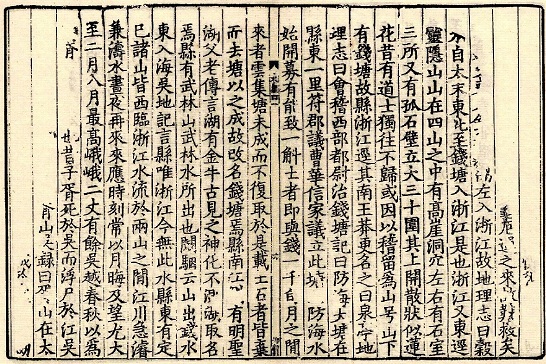 左入浙江故地理志曰穀
水自太末東北至錢塘入浙江是也浙江又東逕
靈隱山山在四山之中有高崖洞穴左右有石室
三所又有孤石壁立大三十圍其上開散狀似
花昔有道士獨往不歸或因以稽留為山号山下
有錢塘故縣浙江逕其南王莽更名之曰泉亭地
理志曰會稽西部都尉治錢塘記曰防海大塘在
縣東一里符郡議曹華信家議立此塘 防海水
始開募有能致一斛土者即與錢一千 月之間
來者雲集塘未成而不復取於是載土石者皆棄
而去塘以之成故改名錢塘焉縣南江 有明聖
湖父老傳言湖有金牛古見之神化不測湖取名
焉縣有武林山武林水所出也闞駰云山出錢水
東入海吳地記言縣唯浙江今無此水縣東有定
巳諸山皆西臨浙江水流於兩山之間江川急濬
兼濤水晝夜再來來應時刻常以月晦及望尤大
至二月八月最高峨峨二丈有餘吳越春秋以為
也昔子胥死於吳而浮尸於江吳